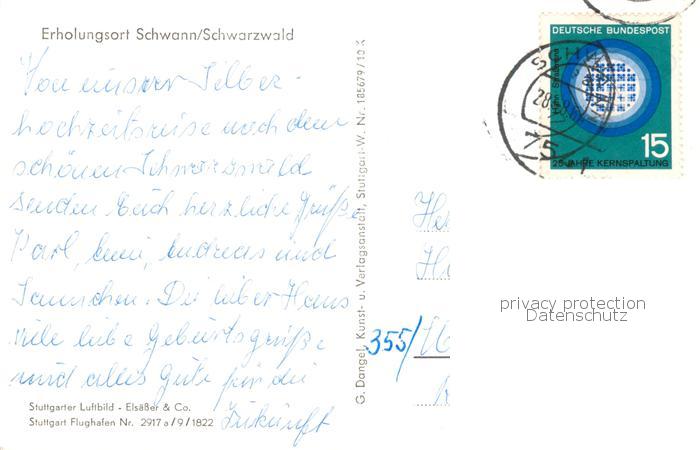 Erholungsort Schwann/Schwarzwald
Von unserer Silber-
hochzeitsreise nach dem
schönen Schwarzwald
senden Euch herzliche Grüße
Karl, Andreas und
Dir lieber Hans
viele liebe Geburtsgrüße
und alles Gute für die
Zukunft
Stuttgarter Luftbild - Elsäßer & Co.
Stuttgart Flughafen Nr. 2917 a/9/1822
G. Dangel, Kunst- u. Verlagsanstalt, Stuttgart-W. Nr. 185679/10
DEUTSCHE BUNDESPOST
Hahn Straßmann
15
25 JAHRE KERNSPALTUNG
355/
privacy protection
Datenschutz